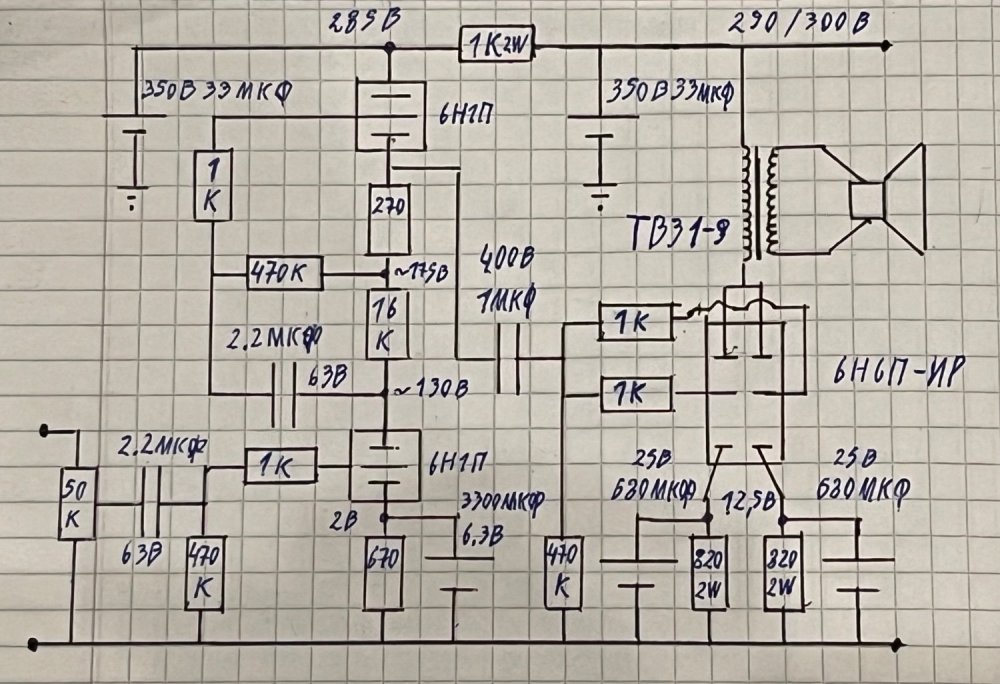 285В
1К 2W
290/300В
350В 33МКФ
6Н1П
350В 33МКФ
1
К
270
ТВЗ1-9
470К
~175В
400В
1МКФ
16
К
1К
2.2МКФ
63В
~130В
1К
6Н6П-ИР
2.2МКФ
1К
6Н1П
25В
680МКФ
25В
680МКФ
50
К
3300МКФ
6.3В
2В
12,5В
63В
470
К
670
470
К
820
2W
820
2W